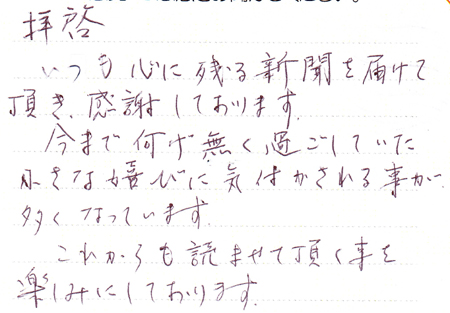 拝啓
いつも心に残る新聞を届けて
頂き、感謝しております。
今まで何げ無く過ごしていた
小さな喜びに気付かされる事が
多くなっています。
これからも読ませて頂く事を
楽しみにしております。